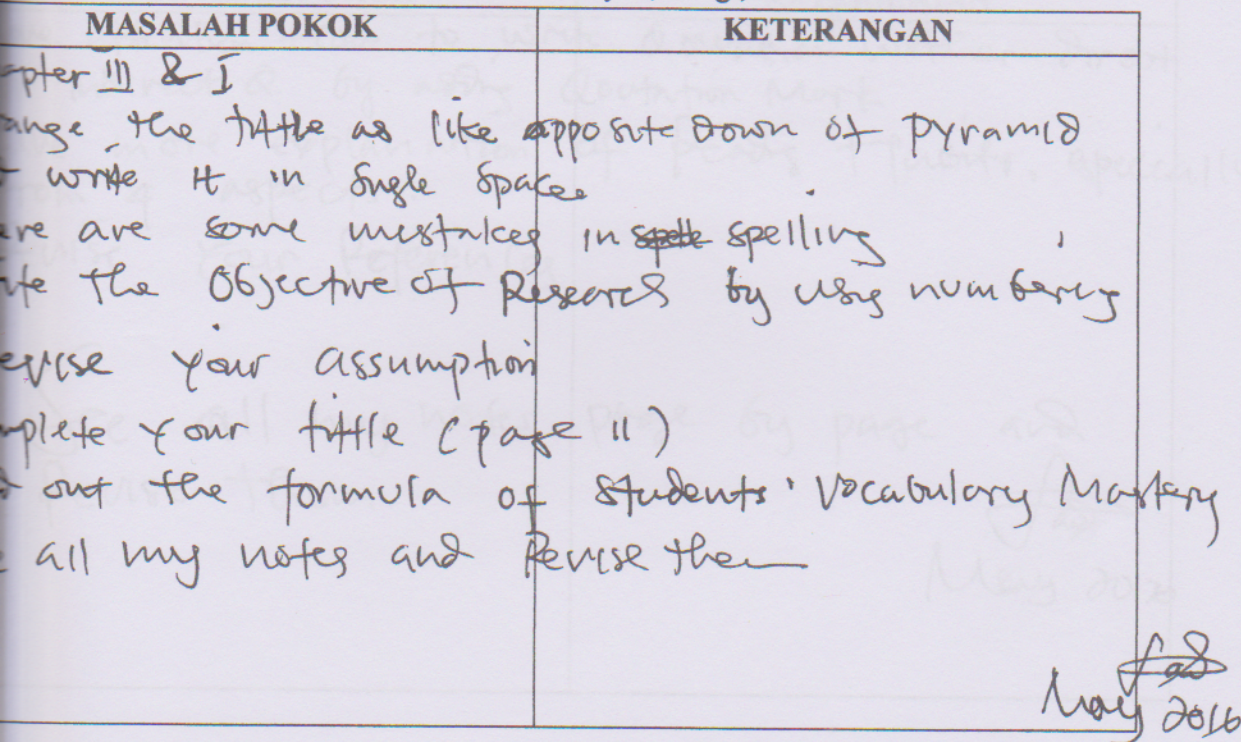 MASALAH POKOK KETERANGAN
apter III & I
ange the tittle as like opposite down of pyramid
write it in single space
ere are some mistakes in spelling
te the Objective of Research by using numbering
evise your assumption
mplete your tittle (page 11)
d out the formula of students' Vocabulary Mastery
e all my notes and Revise them
May 2016